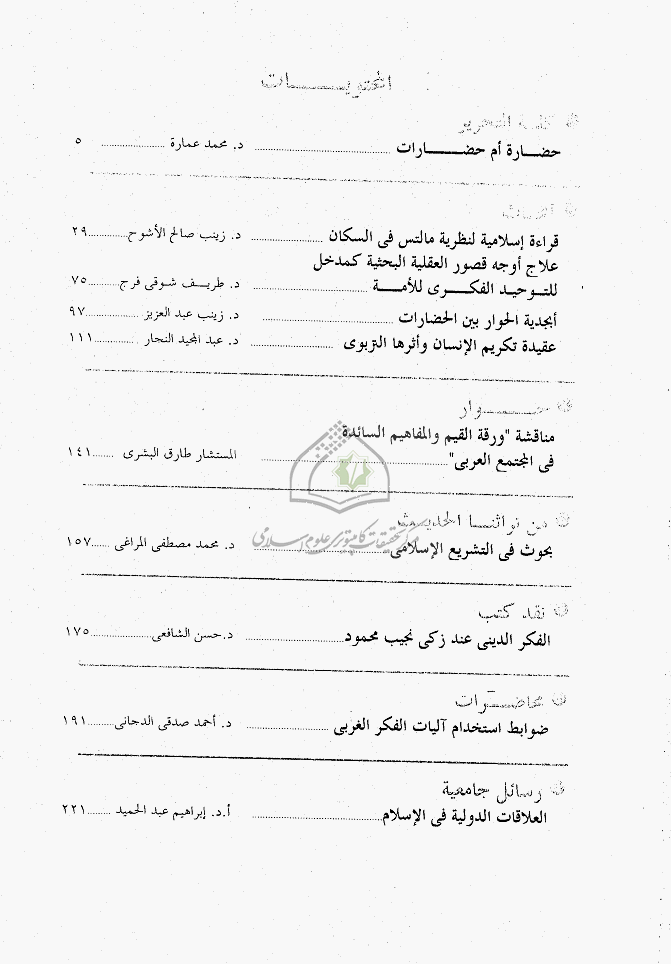 المحتويـــــــات
كلمة التحرير
حضـــارة أم حضـــــــارات ........ د. محمد عمارة ........ ٥
أبحـــاث
قراءة إسلامية لنظرية مالتس فى السكان ........ د. زينب صالح الأشوح ........ ٢٩
علاج أوجه قصور العقلية البحثية كمدخل
للتـــوحيـد الفكـــــرى للأمـــة ........ د. طريـــف شوقى فرج ........ ٧٥
أبجدية الحوار بين الحضارات ........ د. زينب عبد العزيز ........ ٩٧
عقيدة تكريم الإنسان وأثرها التربوى ........ د. عبد المجيد النجار ........ ١١١
حــــــــوار
مناقشة "ورقة القيم والمفاهيم السائدة
فى المجتمع العربى" ........ المستشار طارق البشرى ........ ١٤١
من تراثنــا الحديـــث
مرکز تحقیقات کامپیوتری علوم اسلامی
بحوث فى التشريع الإسلامى ........ د. محمد مصطفى المراغى ........ ١٥٧
نقد كتب
الفكر الدينى عند زكى نجيب محمود ........ د.حسن الشافعى ........ ١٧٥
محاضــــرات
ضوابط استخدام آليات الفكر الغربى ........ د. أحمد صدقى الدجانى ........ ١٩١
رسائل جامعية
العلاقات الدولية فى الإسلام ........ أ.د. إبراهيم عبد الحميد ........ ٢٢١